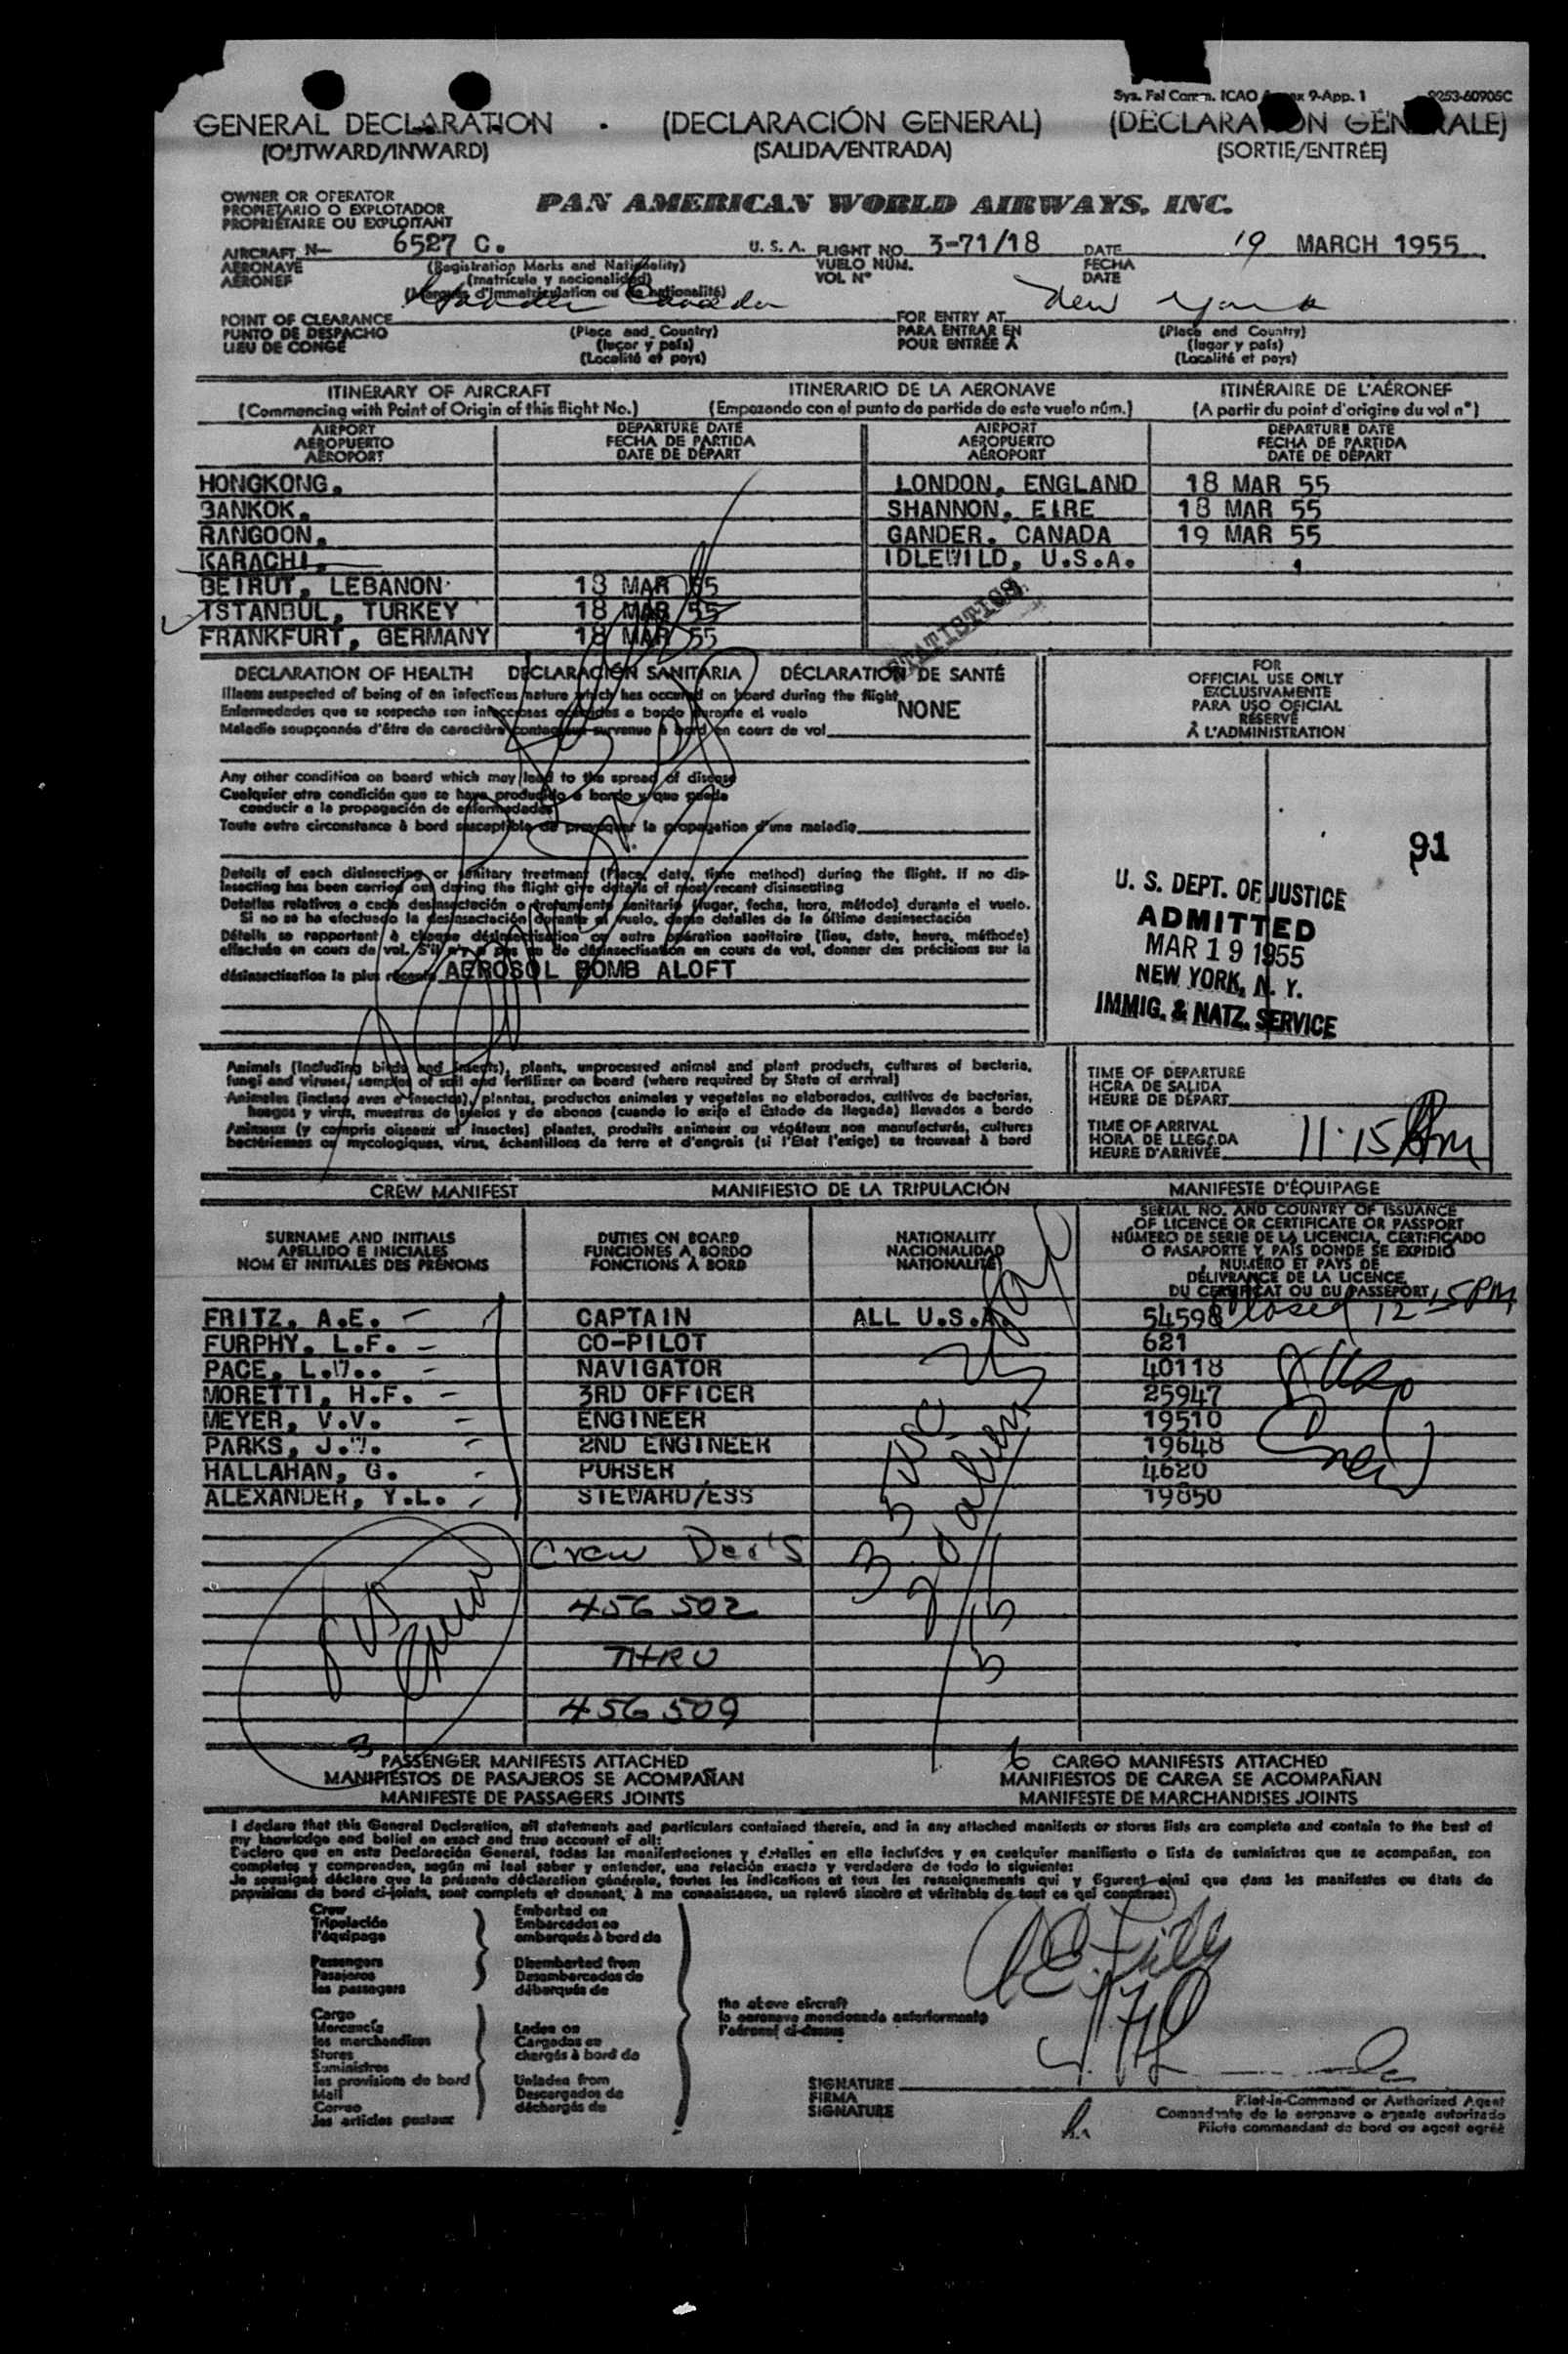 Sys. Fal Comm. ICAO Annex 9-App. 1 9253-60905C
GENERAL DECLARATION (DECLARACIÓN GENERAL) (DECLARATION GÉNÉRALE)
(OUTWARD/INWARD) (SALIDA/ENTRADA) (SORTIE/ENTRÉE)
OWNER OR OPERATOR
PROPIETARIO O EXPLOTADOR
PROPRIÉTAIRE OU EXPLOITANT
PAN AMERICAN WORLD AIRWAYS, INC.
AIRCRAFT N— 6527 C. U. S. A. FLIGHT NO. 3-71/18 DATE 19 MARCH 1955
AERONAVE (Registration Marks and Nationality) VUELO NÚM. FECHA
AÉRONEF (matrícula y nacionalidad) VOL Nº DATE
(Marques d'immatriculation ou de nationalité)
POINT OF CLEARANCE Gander Canada FOR ENTRY AT New York
PUNTO DE DESPACHO (Place and Country) PARA ENTRAR EN (Place and Country)
LIEU DE CONGÉ (lugar y país) POUR ENTRÉE À (lugar y país)
(Localité et pays) (Localité et pays)
ITINERARY OF AIRCRAFT ITINERARIO DE LA AERONAVE ITINÉRAIRE DE L'AÉRONEF
(Commencing with Point of Origin of this flight No.) (Empezando con el punto de partida de este vuelo núm.) (A partir du point d'origine du vol nº)
AIRPORT DEPARTURE DATE AIRPORT DEPARTURE DATE
AEROPUERTO FECHA DE PARTIDA AEROPUERTO FECHA DE PARTIDA
AÉROPORT DATE DE DÉPART AÉROPORT DATE DE DÉPART
HONGKONG. LONDON, ENGLAND 18 MAR 55
BANKOK. SHANNON, EIRE 18 MAR 55
RANGOON. GANDER, CANADA 19 MAR 55
KARACHI. IDLEWILD, U.S.A.
BEIRUT, LEBANON 18 MAR 55
ISTANBUL, TURKEY 18 MAR 55
FRANKFURT, GERMANY 18 MAR 55
STATISTICS
DECLARATION OF HEALTH DECLARACIÓN SANITARIA DÉCLARATION DE SANTÉ
Illness suspected of being of an infectious nature which has occured on board during the flight
Enfermedades que se sospecha son infecciosas ocurridas a bordo durante el vuelo NONE
Maladie soupçonnée d'être de caractère contagieux survenue à bord en cours de vol
Any other condition on board which may lead to the spread of disease
Cualquier otra condición que se haya producido a bordo y que pueda
conducir a la propagación de enfermedades
Toute autre circonstance à bord susceptible de provoquer la propagation d'une maladie
Details of each disinsecting or sanitary treatment (Place, date, time method) during the flight. If no dis-
insecting has been carried out during the flight give details of most recent disinsecting
Detalles relativos a cada desinsectación o tratamiento sanitario (lugar, fecha, hora, método) durante el vuelo.
Si no se ha efectuado la desinsectación durante el vuelo, dense detalles de la última desinsectación
Détails se rapportant à chaque désinsectisation ou autre opération sanitaire (lieu, date, heure, méthode)
effectuée en cours de vol. S'il n'y a pas eu de désinsectisation en cours de vol, donner des précisions sur la
désinsectisation la plus récente AEROSOL BOMB ALOFT
FOR
OFFICIAL USE ONLY
EXCLUSIVAMENTE
PARA USO OFICIAL
RÉSERVÉ
À L'ADMINISTRATION
91
U. S. DEPT. OF JUSTICE
ADMITTED
MAR 19 1955
NEW YORK, N. Y.
IMMIG. & NATZ. SERVICE
Animals (including birds and insects), plants, unprocessed animal and plant products, cultures of bacteria,
fungi and viruses, samples of soil and fertilizer on board (where required by State of arrival)
Animales (incluso aves e insectos), plantas, productos animales y vegetales no elaborados, cultivos de bacterias,
hongos y virus, muestras de suelos y de abonos (cuando lo exija el Estado de llegada) llevados a bordo
Animaux (y compris oiseaux et insectes) plantes, produits animaux ou végétaux non manufacturés, cultures
bactériennes ou mycologiques, virus, échantillons de terre et d'engrais (si l'Etat l'exige) se trouvant à bord
TIME OF DEPARTURE
HORA DE SALIDA
HEURE DE DÉPART
TIME OF ARRIVAL
HORA DE LLEGADA
HEURE D'ARRIVÉE 11:15 Am
CREW MANIFEST MANIFIESTO DE LA TRIPULACIÓN MANIFESTE D'ÉQUIPAGE
SURNAME AND INITIALS DUTIES ON BOARD NATIONALITY
APELLIDO E INICIALES FUNCIONES A BORDO NACIONALIDAD
NOM ET INITIALES DES PRÉNOMS FONCTIONS À BORD NATIONALITÉ
SERIAL NO. AND COUNTRY OF ISSUANCE
OF LICENCE OR CERTIFICATE OR PASSPORT
NÚMERO DE SERIE DE LA LICENCIA, CERTIFICADO
O PASAPORTE Y PAÍS DONDE SE EXPIDIÓ
NUMÉRO ET PAYS DE
DÉLIVRANCE DE LA LICENCE,
DU CERTIFICAT OU DU PASSEPORT
Closed 12 15 PM
FRITZ, A.E. CAPTAIN ALL U.S.A. 54598
FURPHY, L.F. CO-PILOT 621
PACE, L.W.. NAVIGATOR 40118
MORETTI, H.F. 3RD OFFICER 25947
MEYER, V.V. ENGINEER 19510
PARKS, J.W. 2ND ENGINEER 19648
HALLAHAN, G. PURSER 4620
ALEXANDER, Y.L. STEWARD/ESS 19850
Crew Dec's
456 502
THRU
456 509
33 USC
2 aliens
35
3 PASSENGER MANIFESTS ATTACHED 6 CARGO MANIFESTS ATTACHED
MANIFIESTOS DE PASAJEROS SE ACOMPAÑAN MANIFIESTOS DE CARGA SE ACOMPAÑAN
MANIFESTE DE PASSAGERS JOINTS MANIFESTE DE MARCHANDISES JOINTS
I declare that this General Declaration, all statements and particulars contained therein, and in any attached manifests or stores lists are complete and contain to the best of
my knowledge and belief an exact and true account of all:
Declaro que en esta Declaración General, todas las manifestaciones y detalles en ella incluídos y en cualquier manifiesto o lista de suministros que se acompañan, son
completos y comprenden, según mi leal saber y entender, una relación exacta y verdadera de todo lo siguiente:
Je soussigné déclare que la présente déclaration générale, toutes les indications et tous les renseignements qui y figurent ainsi que dans les manifestes ou états de
provisions de bord ci-joints, sont complets et donnent, à ma connaissance, un relevé sincère et véritable de tout ce qui concerne:
Crew Embarked on
Tripulación Embarcados en
l'équipage embarqués à bord de
Passengers Disembarked from
Pasajeros Desembarcados de
les passagers débarqués de
Cargo
Mercancía Laden on
les marchandises Cargados en
Stores chargés à bord de
Suministros
les provisions de bord Unladen from
Mail Descargados de
Correo déchargés de
les articles postaux
the above aircraft
la aeronave mencionada anteriormente
l'aéronef ci-dessus
SIGNATURE
FIRMA
SIGNATURE
Pilot-in-Command or Authorized Agent
Comandante de la aeronave o agente autorizado
Pilote commandant de bord ou agent agréé